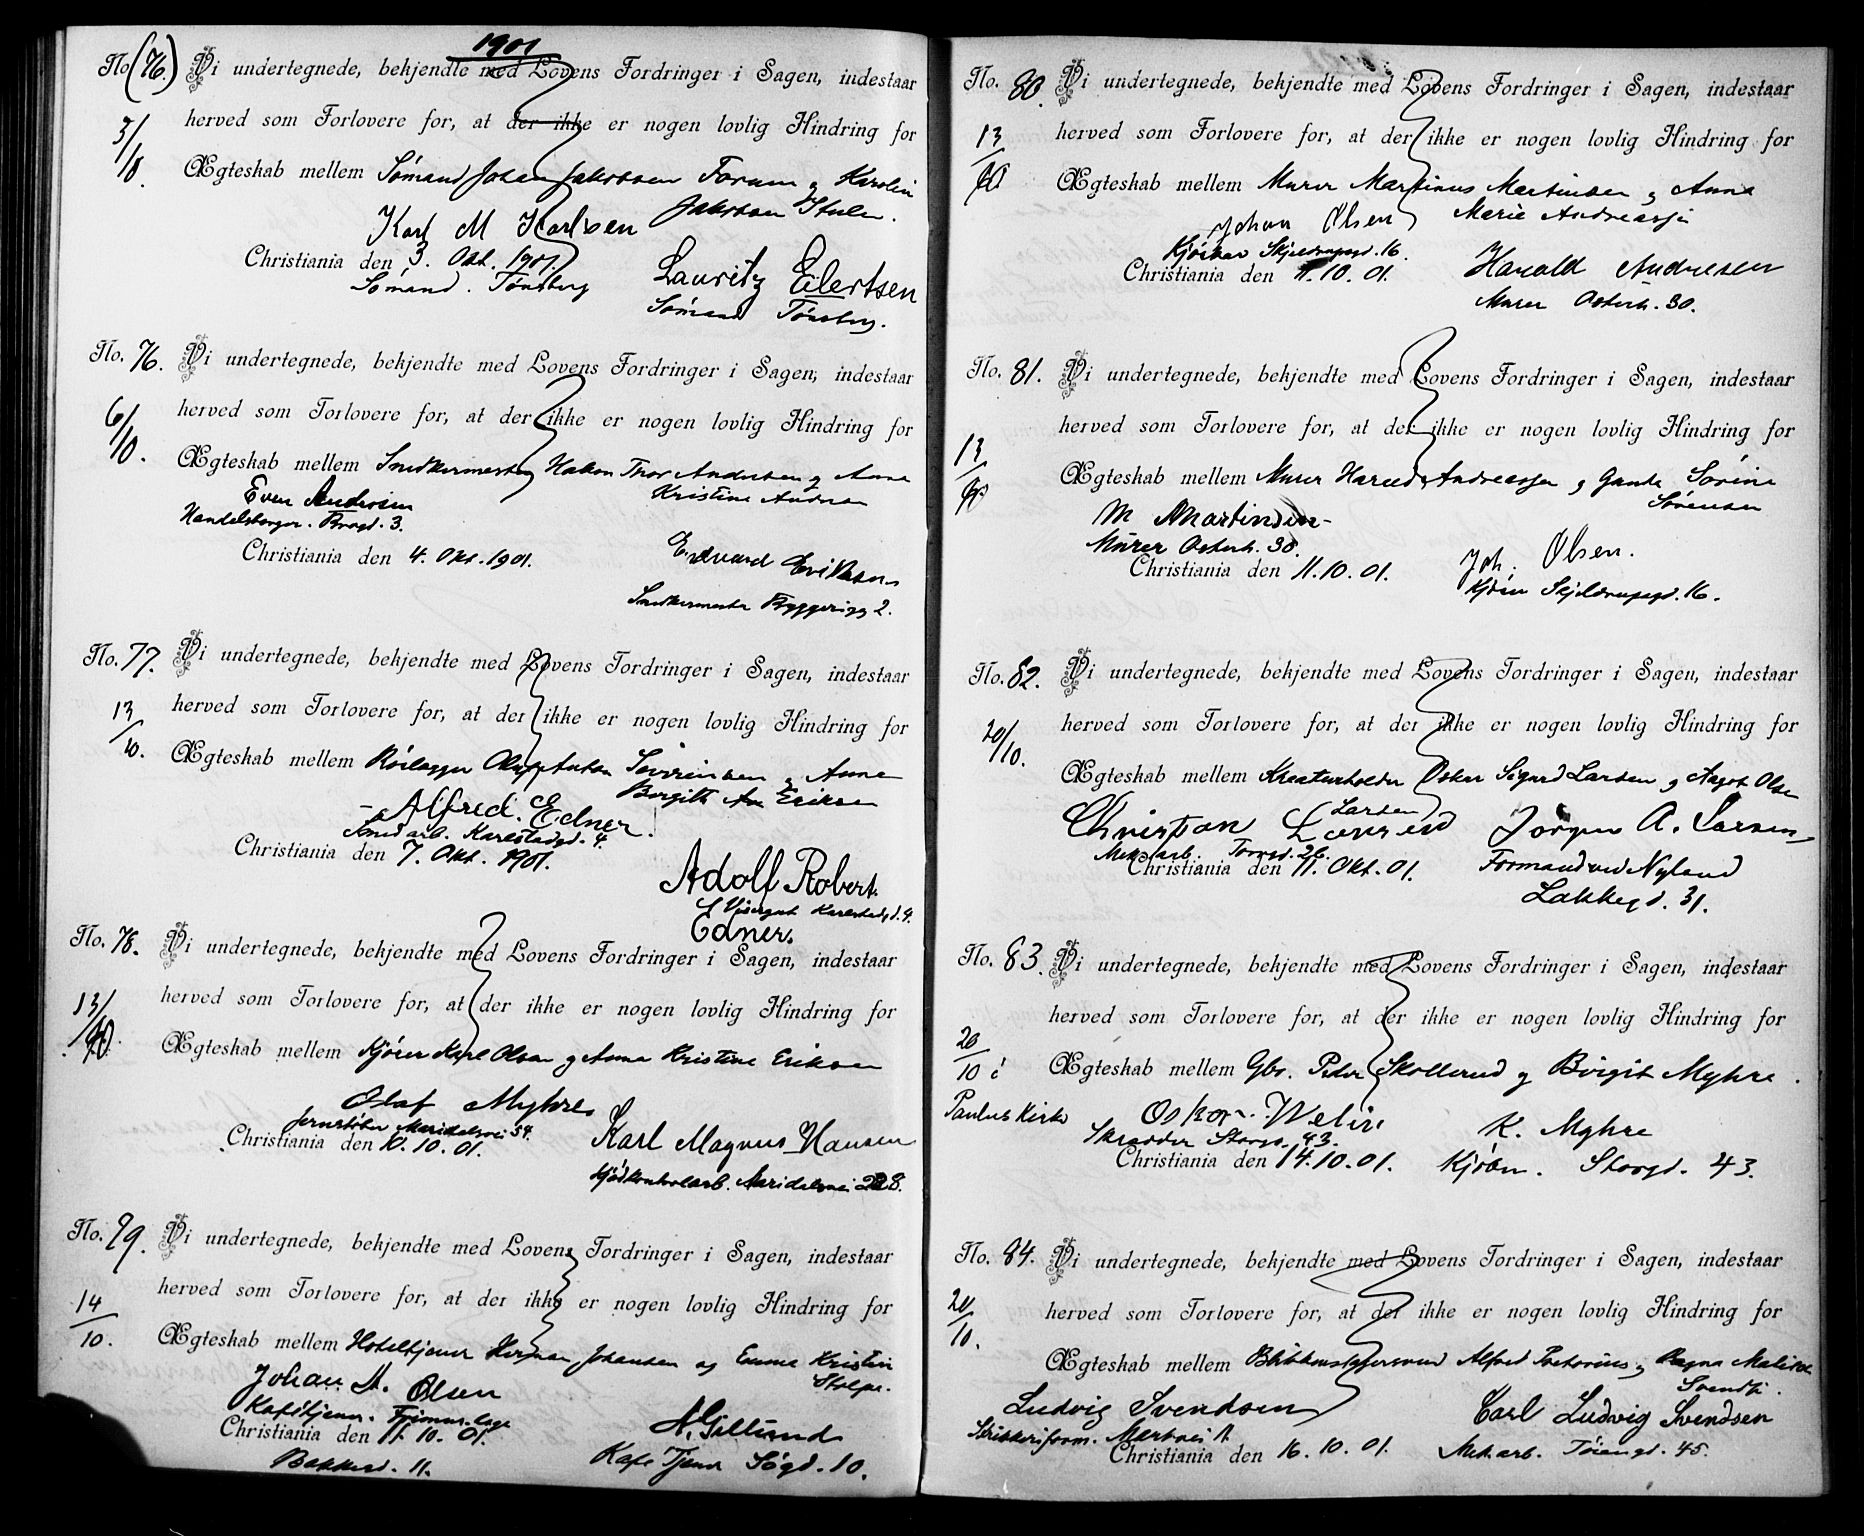 1901
No (76.) Vi undertegnede, bekjendte med Lovens Fordringer i Sagen, indestaar
herved som Forlovere for, at der ikke er nogen lovlig Hindring for
Ægteskab mellem Sømand Johan Jakobsen og Karolin
Jakobsen
Karl M Karlsen
Christiania den 3. Okt. 1901.
Lauritz Eilertsen
Sømand. Tønsberg
Sømand Tønsberg.
No. 76. Vi undertegnede, bekjendte med Lovens Fordringer i Sagen, indestaar
6/10.
herved som Forlovere for, at der ikke er nogen lovlig Hindring for
Ægteskab mellem Snedkermester Hakon Thor Andersen og Anna
Kristine Andersen
Even Andersen
Handelsborger. 3.
Christiania den 4. Okt. 1901.
Edvard Eriksen
Snedkermester 2.
No. 77. Vi undertegnede, bekjendte med Lovens Fordringer i Sagen, indestaar
13/10.
herved som Forlovere for, at der ikke er nogen lovlig Hindring for
Ægteskab mellem Rørlægger Anton Severinsen og Anna
Eriksen
Alfred. Edner.
Smedarb. Karlstadgd. 4.
Christiania den 7. Okt. 1901.
Adolf Robert
Visergut Karlstadgd. 4.
Edner.
No. 78. Vi undertegnede, bekjendte med Lovens Fordringer i Sagen, indestaar
13/10.
herved som Forlovere for, at der ikke er nogen lovlig Hindring for
Ægteskab mellem Kjører Karl Olsen og Anna Kristine Eriksen
Olaf Myhre
Jernstøber Maridalsvei 54.
Christiania den 10. 10. 01.
Karl Magnus Hansen
Kjødkontrolarb. Maridalsvei 228.
No. 79. Vi undertegnede, bekjendte med Lovens Fordringer i Sagen, indestaar
14/10.
herved som Forlovere for, at der ikke er nogen lovlig Hindring for
Ægteskab mellem Hoteltjener Herman Johansen og Emma Kristin
Stolpe.
Johan A. Olsen
Kafétjener.
Christiania den 11. 10. 01.
A. Gillund
Bakkegd. 11.
Kafe Tjener Søgd. 10.
No. 80. Vi undertegnede, bekjendte med Lovens Fordringer i Sagen, indestaar
13/10
herved som Forlovere for, at der ikke er nogen lovlig Hindring for
Ægteskab mellem Murer Martinus Martinsen og Anna
Marie Andreassen
Johan Olsen
Kjører Skjeldrupsgd. 16.
Christiania den 11. 10. 01.
Harald Andresen
Murer Osterh. 30.
No. 81. Vi undertegnede, bekjendte med Lovens Fordringer i Sagen, indestaar
13/10
herved som Forlovere for, at der ikke er nogen lovlig Hindring for
Ægteskab mellem Murer Harald Andreassen og Sørine
Sørensen
M Martinsen
Murer Osterh. 30.
Christiania den 11. 10. 01.
Joh. Olsen.
Kjører Skjeldrupsgd. 16.
No. 82. Vi undertegnede, bekjendte med Lovens Fordringer i Sagen, indestaar
20/10.
herved som Forlovere for, at der ikke er nogen lovlig Hindring for
Ægteskab mellem Kreaturholder Oskar Sigurd Larsen og Aagot Olsen
Larsen
Christian
Jørgen A. Larsen
Mek. arb. Torvgd. 26.
Christiania den 11. Okt. 01.
Formand ved Nyland
Lakkegd. 31.
No. 83. Vi undertegnede, bekjendte med Lovens Fordringer i Sagen, indestaar
20/10 i
Paulus Kirke
herved som Forlovere for, at der ikke er nogen lovlig Hindring for
Ægteskab mellem Gbr. Peder Skollerud og Birgit Myhre.
Oskar Welin
Skrædder Storgd. 43.
Christiania den 14. 10. 01.
K. Myhre
Kjøbm. Storgd. 43.
No. 84. Vi undertegnede, bekjendte med Lovens Fordringer i Sagen, indestaar
20/10.
herved som Forlovere for, at der ikke er nogen lovlig Hindring for
Ægteskab mellem Blikkenslagersvend Alfred Pretorius og Ragna
Ludvig Svendsen
Christiania den 16. 10. 01.
Carl Ludvig Svendsen
Mek. arb. Tøiengd. 45.